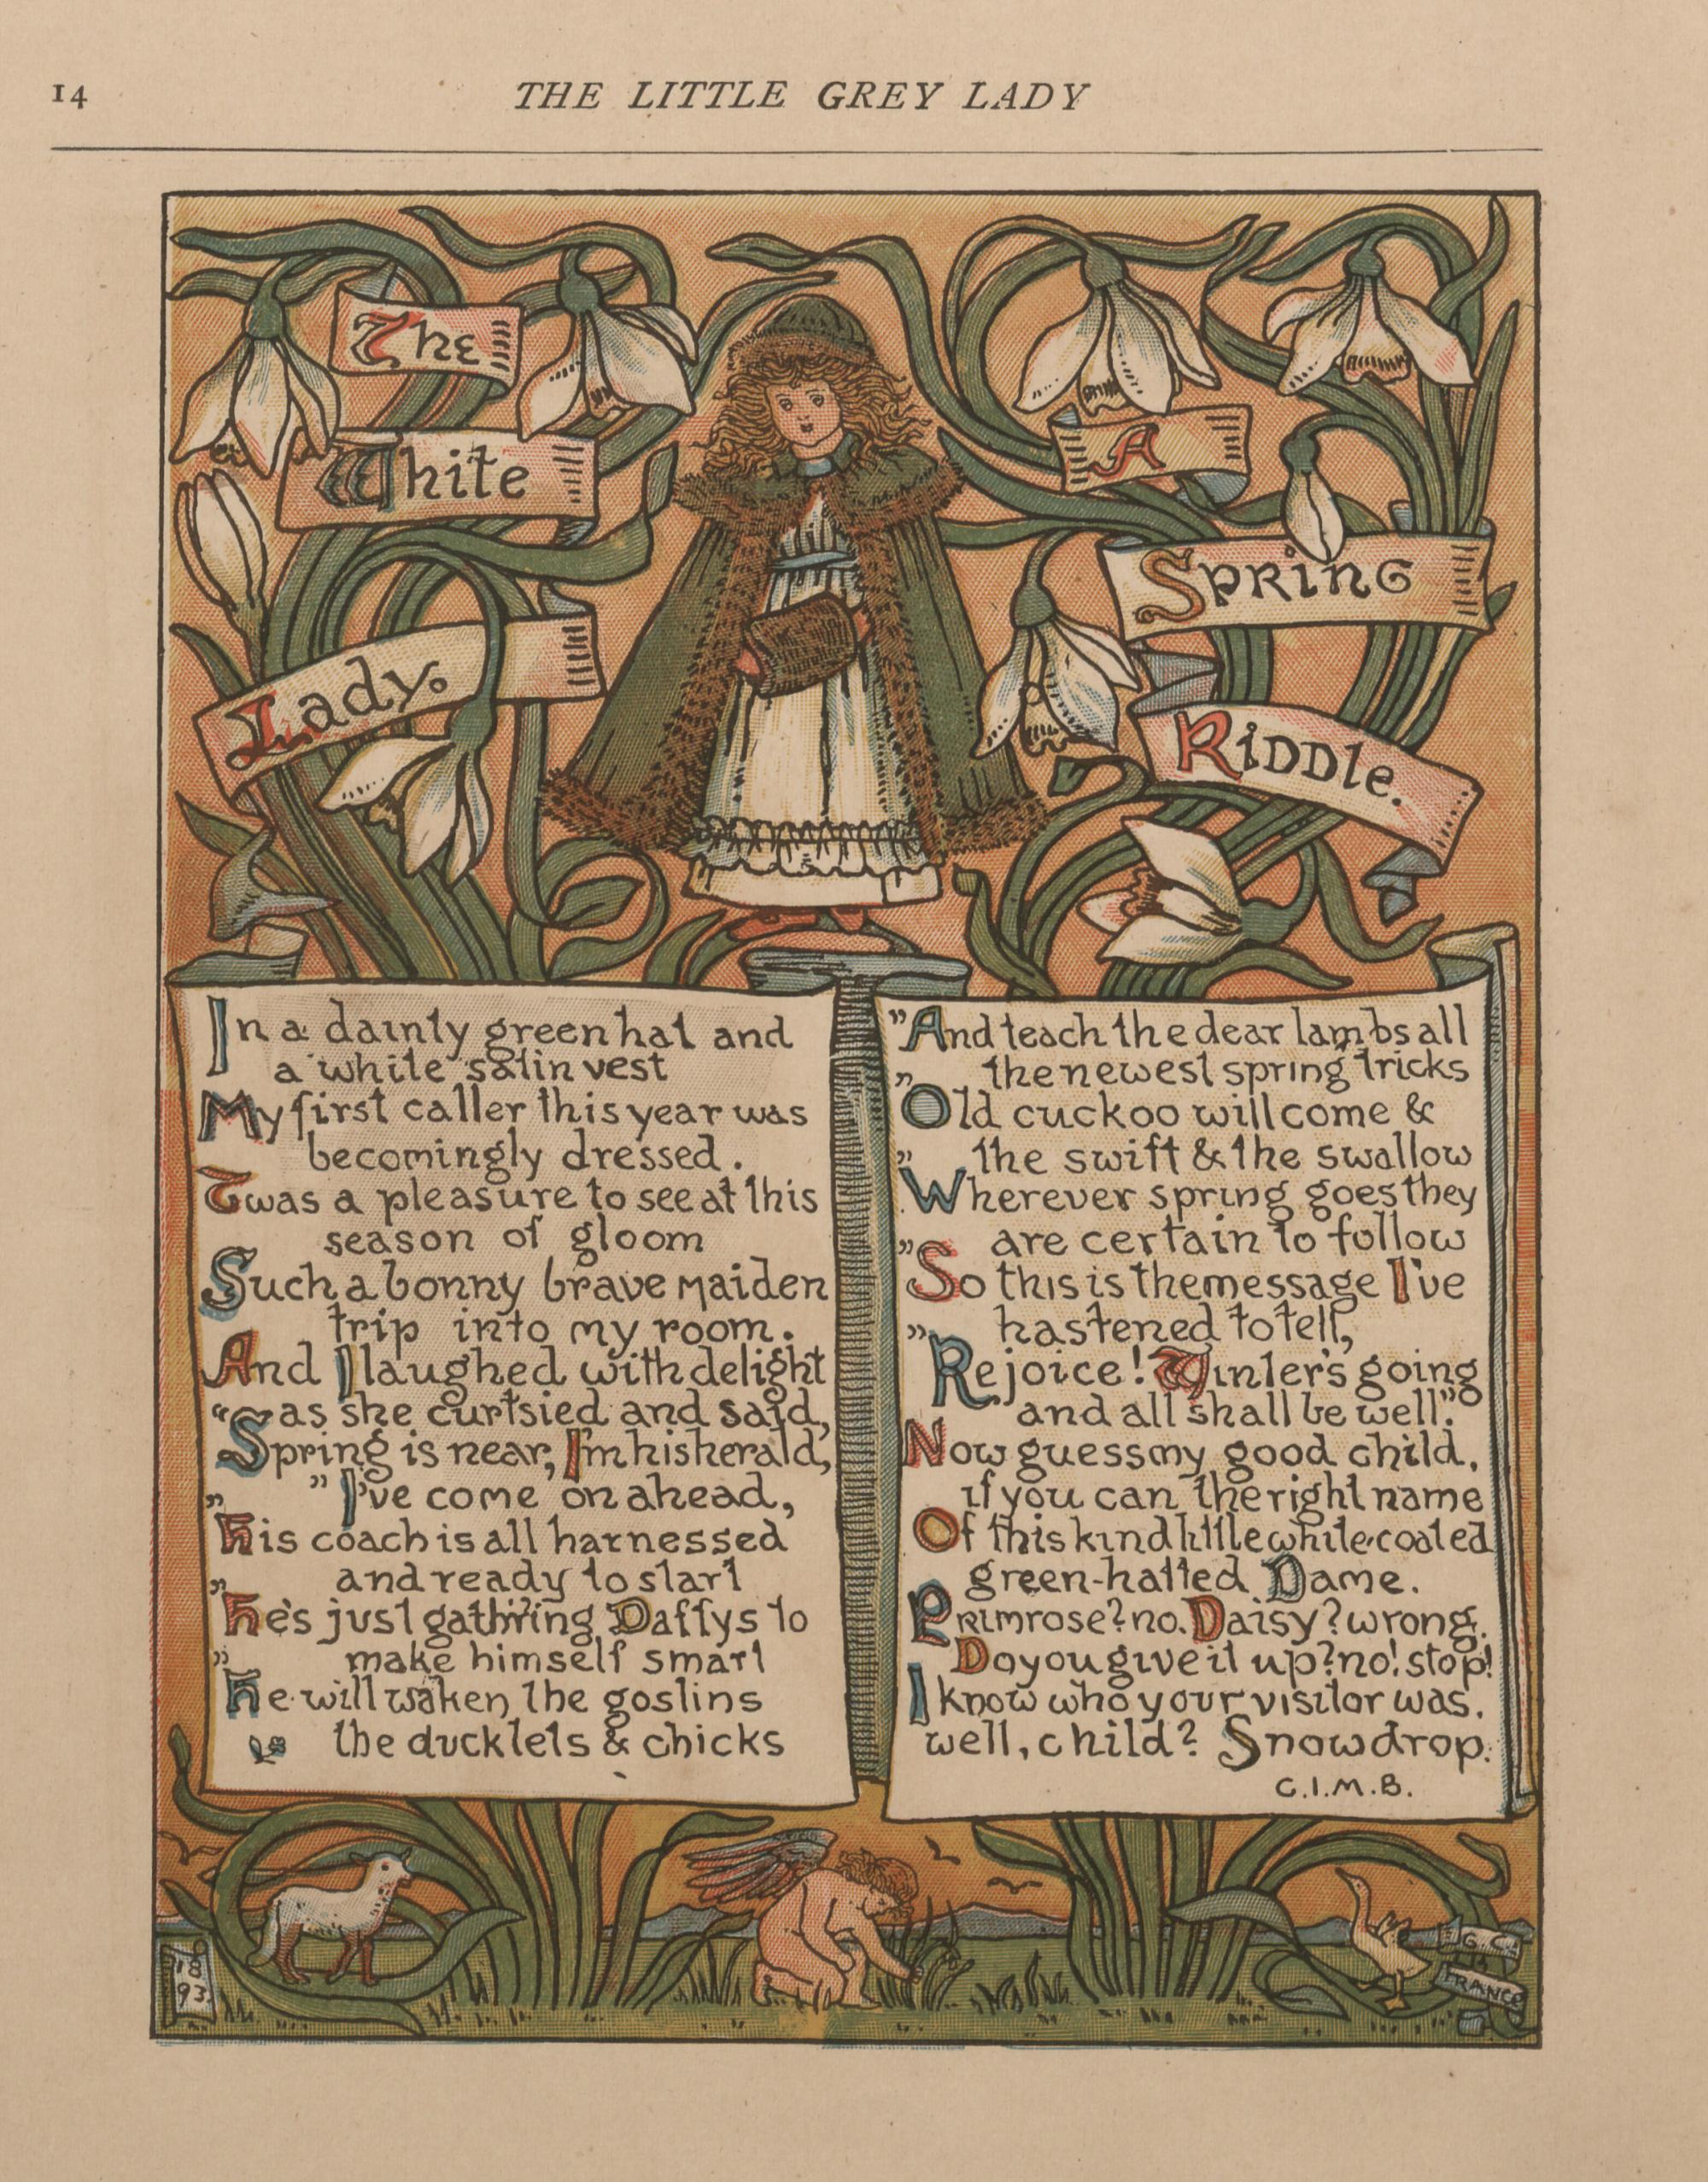 14
THE LITTLE GREY LADY
The
White
Lady.
A
Spring
Riddle.
In a dainty green hat and
a white satin vest
My first caller this year was
becomingly dressed.
Twas a pleasure to see at this
season of gloom
Such a bonny brave maiden
trip into my room.
And I laughed with delight
as she curtsied and said,
“Spring is near, I'm his herald,
” I've come on ahead,
” His coach is all harnessed
and ready to start
” He's just gath'ring Daffys to
make himself smart
” He will waken the goslins
the ducklets & chicks
” And teach the dear lambs all
the newest spring tricks
” Old cuckoo will come &
the swift & the swallow
” Wherever spring goes they
are certain to follow
” So this is the message I've
hastened to tell,
” Rejoice! Winter's going
and all shall be well”.
Now guess my good child,
if you can the right name
Of this kind little white-coated
green-hatted Dame.
Primrose? no. Daisy? wrong.
Do you give it up? no! stop!
I know who your visitor was.
well, child? Snowdrop.
C.I.M.B.
18
93.
G.C.
FRANCE